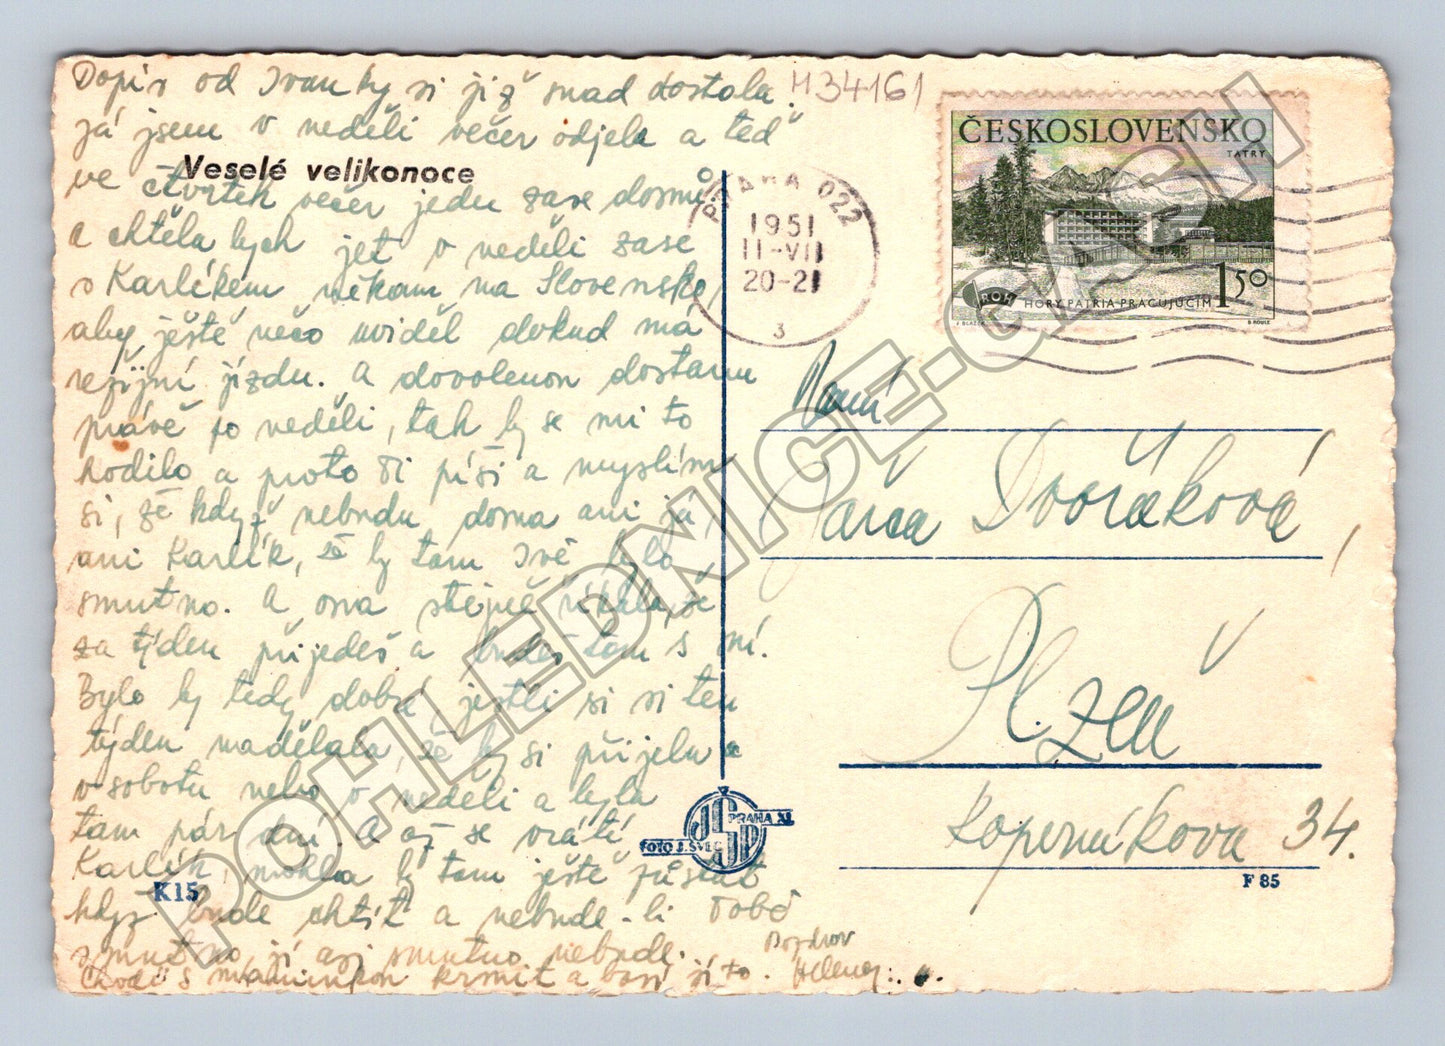 Dopis od Ivanky si již snad dostala.
já jsem v neděli večer odjela a teď
ve čtvrtek večer jedu zase domů
a chtěla bych jet v neděli zase
s Karlíkem někam na Slovensko,
aby ještě něco uviděl dokud má
režijní jízdu. A dovolenou dostanu
právě po neděli, tak by se mi to
hodilo a proto Ti píši a myslím
si, že když nebudu doma ani já,
ani Karlík, že by tam Ivě bylo
smutno. A ona stejně říkala, že
za týden přijedeš a budeš tam s ní.
Bylo by tedy dobré, jestli si si ten
týden nadělala, že by si přijela
v sobotu nebo v neděli a byla
tam pár dní. A až se vrátí
Karlík, mohla by tam ještě zůstat
když bude chtít a nebude-li Tobě
smutno jí asi smutno nebude.
Chodí s maminkou krmit a baví jí to.
Pozdrav
Helena.
H34161
Veselé velikonoce
PRAHA 022
1951
11-VII
20-21
3
ČESKOSLOVENSKO
TATRY
ROH
HORY PATRIA PRACUJÚCIM
1,50
Paní
Jarča Dvořáková,
Plzeň
Koperníkova 34.
PRAHA XI.
FOTO J. ŠVEC
K15
F 85
POHLEDNICE-CASH